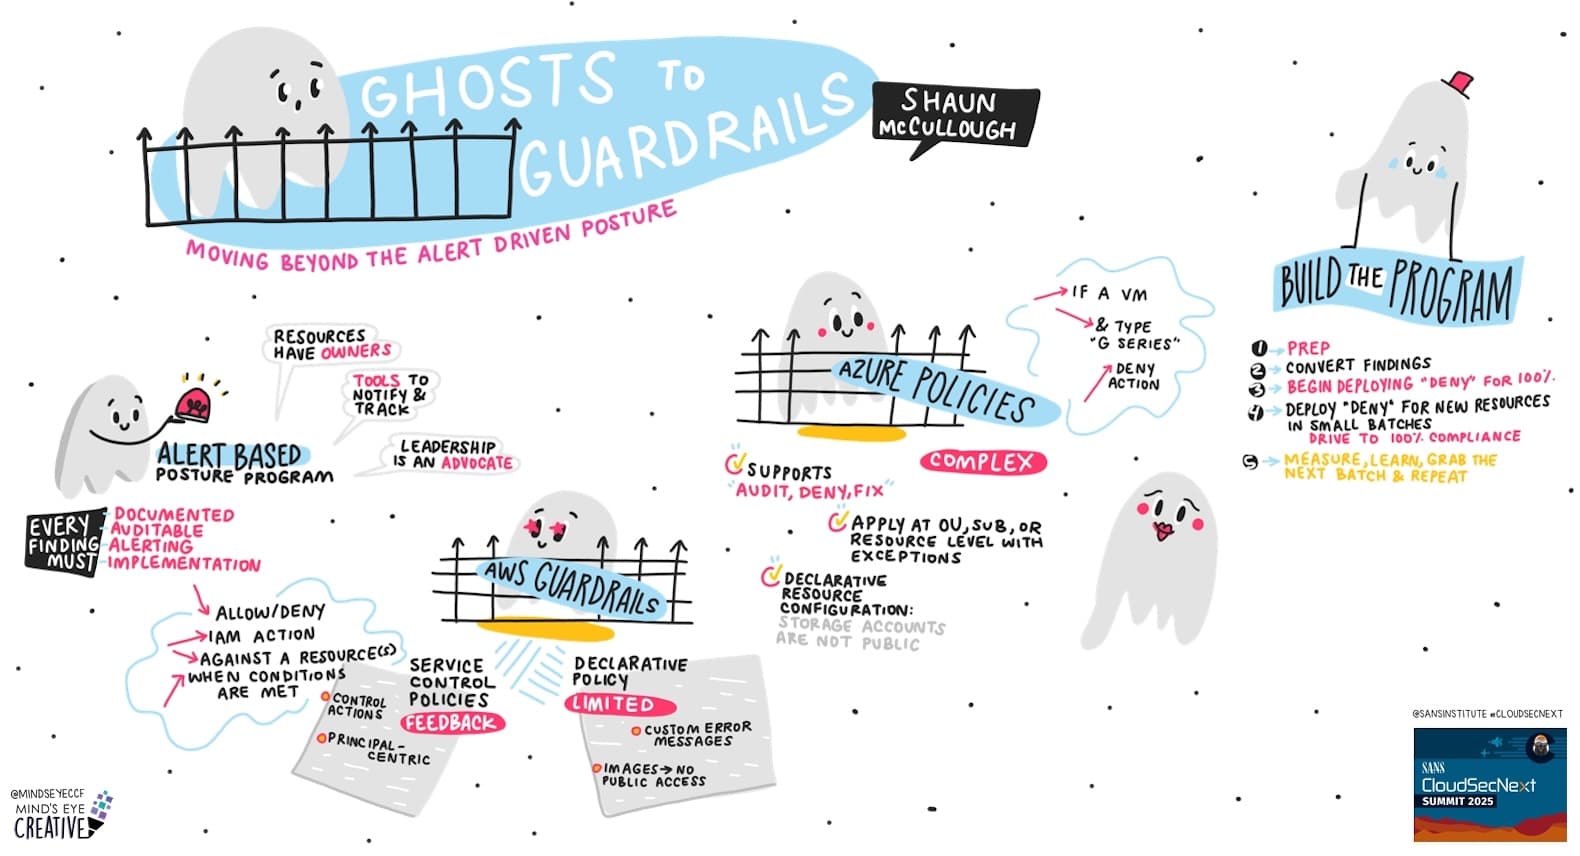 GHOSTS TO
GUARDRAILS
SHAUN
McCULLOUGH
MOVING BEYOND THE ALERT DRIVEN POSTURE
RESOURCES
HAVE OWNERS
TOOLS TO
NOTIFY &
TRACK
LEADERSHIP
IS AN ADVOCATE
ALERT BASED
POSTURE PROGRAM
EVERY
FINDING
MUST
DOCUMENTED
AUDITABLE
ALERTING
IMPLEMENTATION
ALLOW/DENY
IAM ACTION
AGAINST A RESOURCE(S)
WHEN CONDITIONS
ARE MET
AWS GUARDRAILS
SERVICE
CONTROL
POLICIES
FEEDBACK
CONTROL
ACTIONS
PRINCIPAL-
CENTRIC
DECLARATIVE
POLICY
LIMITED
CUSTOM ERROR
MESSAGES
IMAGES → NO
PUBLIC ACCESS
AZURE POLICIES
IF A VM
& TYPE
"G SERIES"
DENY
ACTION
COMPLEX
SUPPORTS
"AUDIT, DENY, FIX"
APPLY AT OU, SUB, OR
RESOURCE LEVEL WITH
EXCEPTIONS
DECLARATIVE
RESOURCE
CONFIGURATION:
STORAGE ACCOUNTS
ARE NOT PUBLIC
BUILD THE PROGRAM
1 → PREP
2 → CONVERT FINDINGS
3 → BEGIN DEPLOYING "DENY" FOR 100%.
4 → DEPLOY "DENY" FOR NEW RESOURCES
IN SMALL BATCHES
DRIVE TO 100% COMPLIANCE
5 → MEASURE, LEARN, GRAB THE
NEXT BATCH & REPEAT
@SANSINSTITUTE #CLOUDSECNEXT
SANS
CloudSecNext
SUMMIT 2025
@MINDSEYECCF
MIND'S EYE
CREATIVE